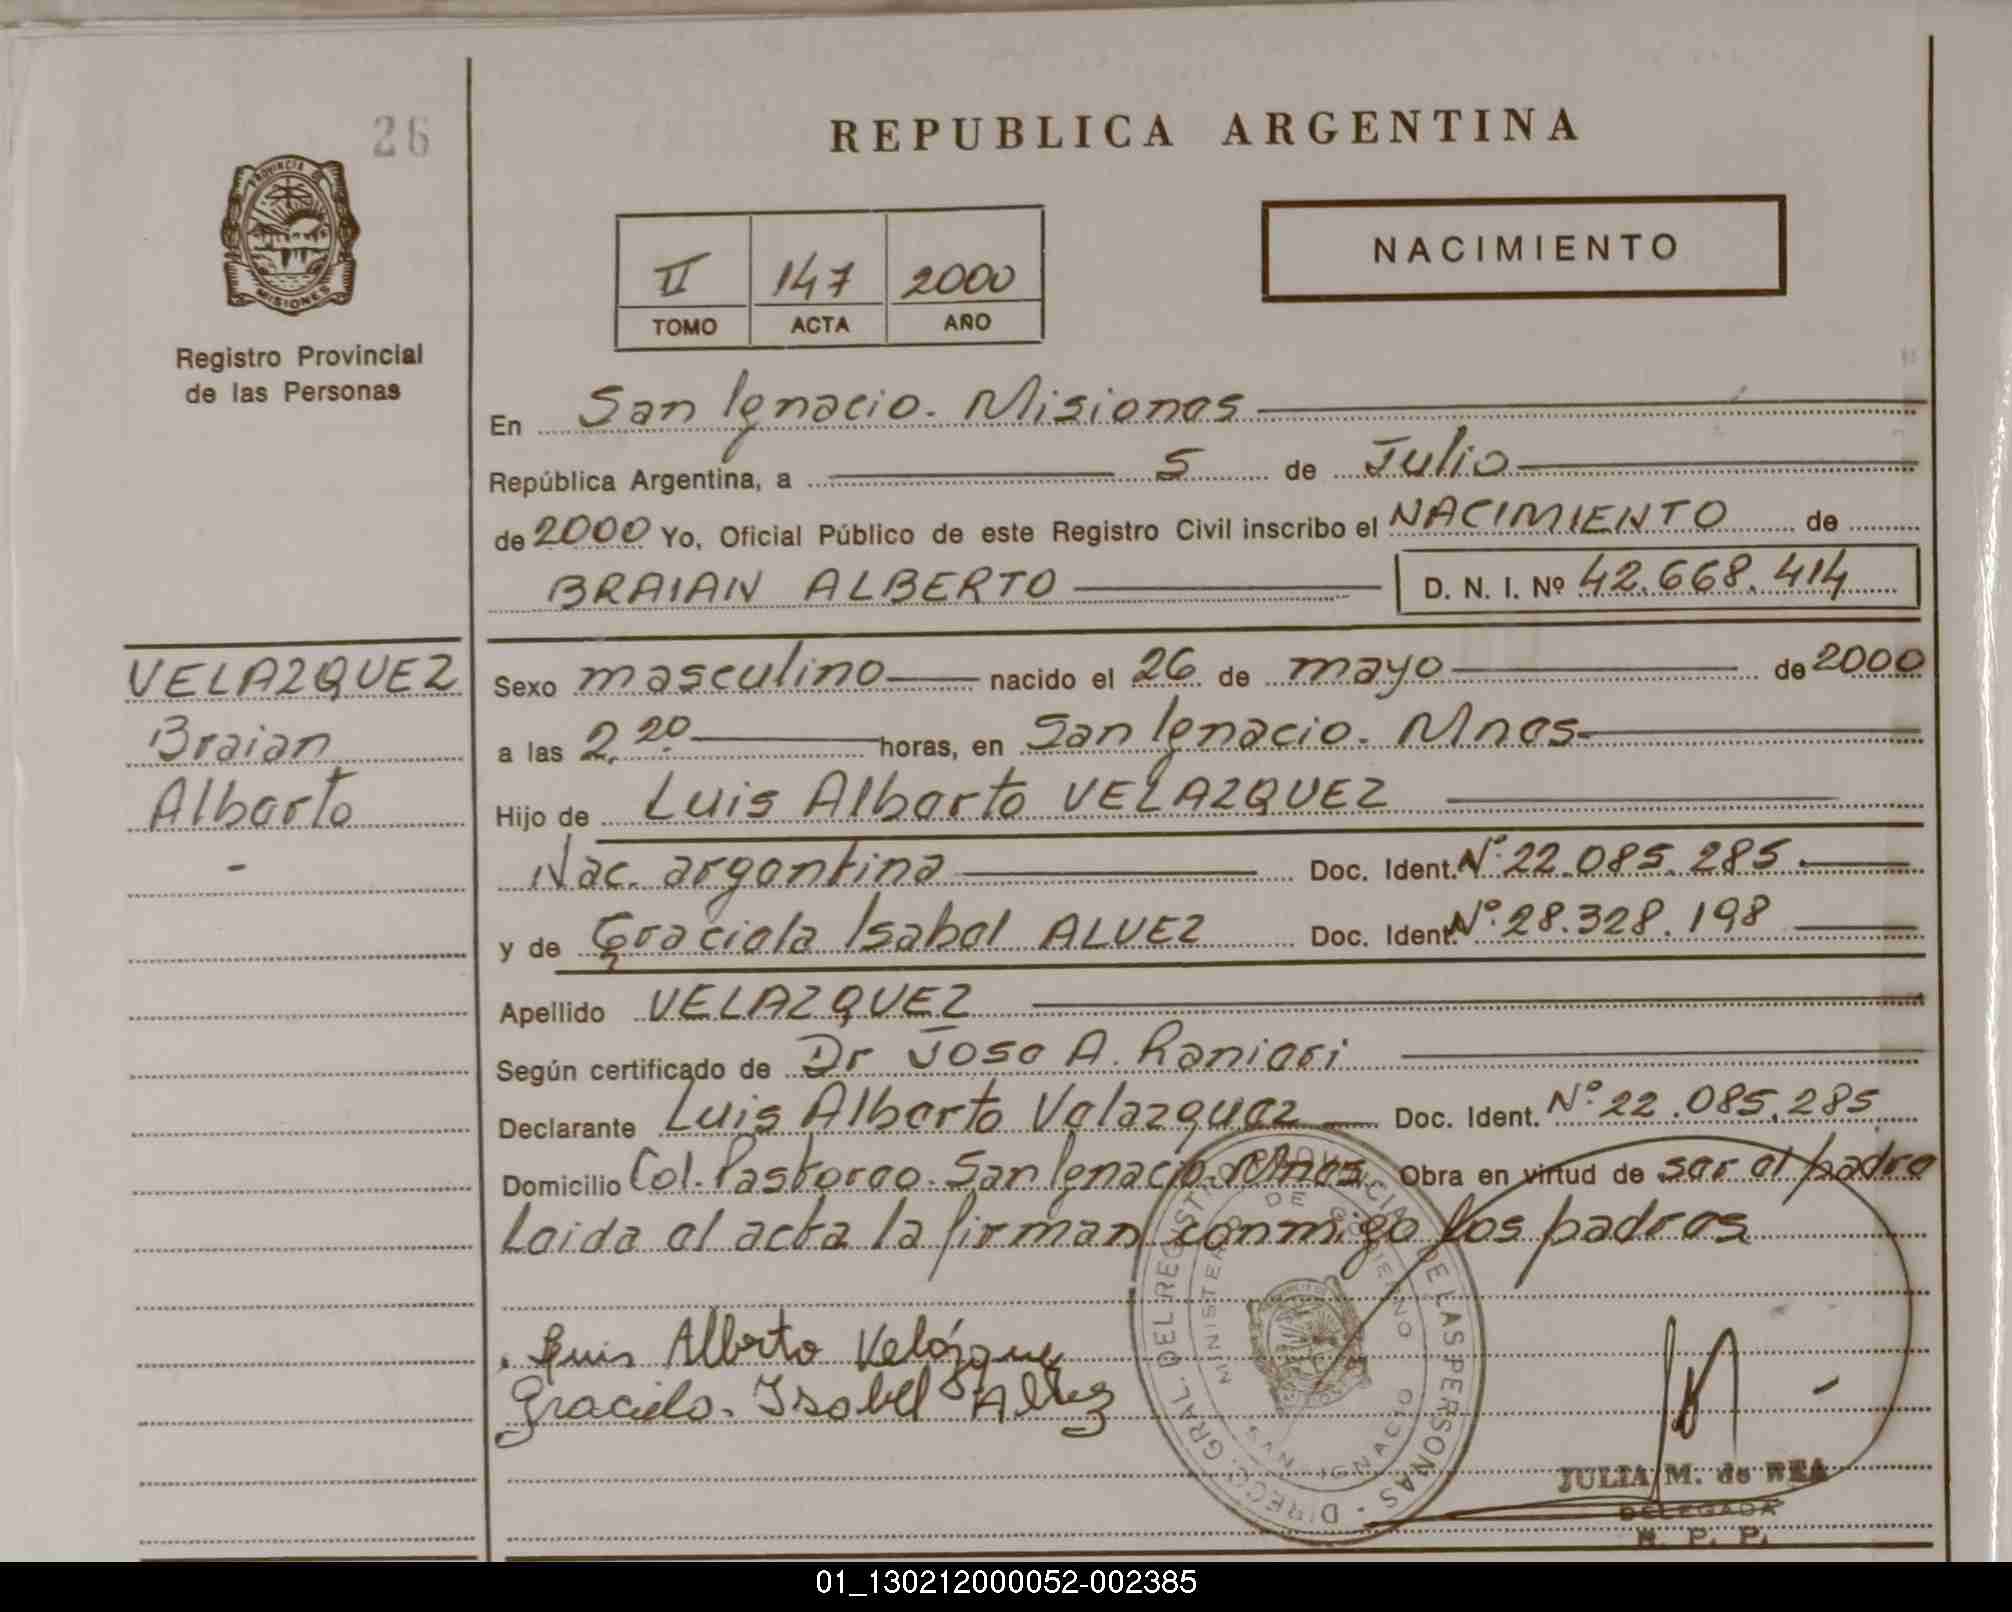 26
REPUBLICA ARGENTINA
PROVINCIA DE
MISIONES
Registro Provincial
de las Personas
II 147 2000
TOMO ACTA AÑO
NACIMIENTO
En San Ignacio. Misiones
República Argentina, a 5 de Julio
de 2000 Yo, Oficial Público de este Registro Civil inscribo el NACIMIENTO de
BRAIAN ALBERTO D. N. I. Nº 42.668.414
VELAZQUEZ
Braian
Alberto
-
Sexo masculino nacido el 26 de mayo de 2000
a las 2,20 horas, en San Ignacio. Mnes
Hijo de Luis Alberto VELAZQUEZ
Nac. argentina Doc. Ident. Nº 22.085.285.
y de Graciela Isabel ALVEZ Doc. Ident. Nº 28.328.198
Apellido VELAZQUEZ
Según certificado de Dr Jose A. Ranieri
Declarante Luis Alberto Velazquez Doc. Ident. Nº 22.085.285
Domicilio Col. Pastoreo. San Ignacio. Mnes. Obra en virtud de ser el padre
Leida el acta la firman conmigo los padres
Luis Alberto Velázquez
Graciela Isabel Alvez
DIREC. GRAL. DEL REGISTRO PROVINCIAL DE LAS PERSONAS
MINISTERIO DE GOBIERNO
SAN IGNACIO
JULIA M. de REA
DELEGADA
R. P. P.
01_130212000052-002385